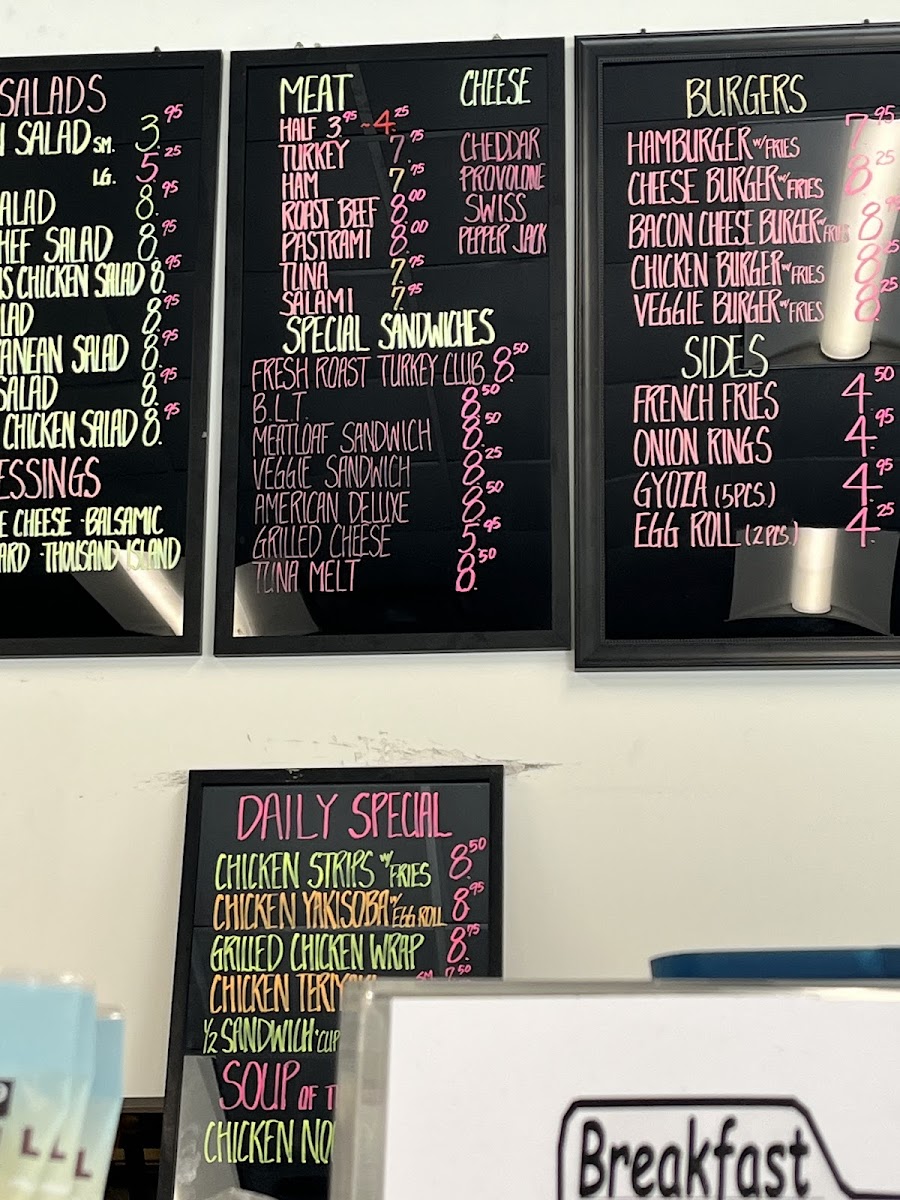 SALADS
SALAD SM. 3.95
LG. 5.25
SALAD 8.95
CHEF SALAD 8.95
CHICKEN SALAD 8.95
8.95
SALAD 8.95
SALAD 8.95
CHICKEN SALAD 8.95
CHEESE · BALSAMIC
THOUSAND ISLAND
MEAT
HALF 3.95 ~ 4.25
TURKEY 7.75
HAM 7.75
ROAST BEEF 8.00
PASTRAMI 8.00
TUNA 7.75
SALAMI 7.95
CHEESE
CHEDDAR
PROVOLONE
SWISS
PEPPER JACK
SPECIAL SANDWICHES
FRESH ROAST TURKEY CLUB 8.50
B.L.T. 8.50
MEATLOAF SANDWICH 8.50
VEGGIE SANDWICH 8.25
AMERICAN DELUXE 8.50
GRILLED CHEESE 5.95
TUNA MELT 8.50
BURGERS
HAMBURGER W/ FRIES 7.95
CHEESE BURGER W/ FRIES 8.25
BACON CHEESE BURGER W/ FRIES 8.95
CHICKEN BURGER W/ FRIES 8.25
VEGGIE BURGER W/ FRIES 8.25
SIDES
FRENCH FRIES 4.50
ONION RINGS 4.95
GYOZA (5PCS.) 4.95
EGG ROLL (2PCS.) 4.25
DAILY SPECIAL
CHICKEN STRIPS W/ FRIES 8.50
CHICKEN YAKISOBA W/ EGG ROLL 8.95
GRILLED CHICKEN WRAP 8.75
CHICKEN SM 7.50
1/2 SANDWICH · CUP
SOUP OF
CHICKEN
Breakfast